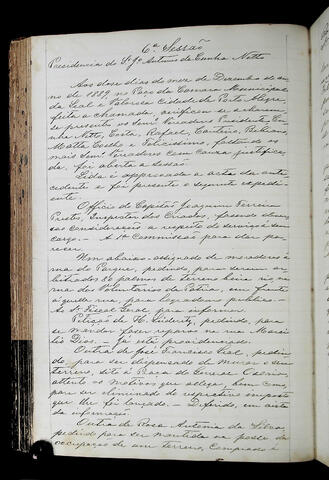 6ª Sessão
Presidencia do Sr. Jº Antunes da Cunha Netto
Aos dose dias do mez de Dezembro do an-
no de 1889, no Paço da Camara Municipal
da Leal e Valorosa Cidade de Porto Alegre,
feita a chamada, verificou-se acharem-
se presentes os Senrs. Vereadores Presidente Cu-
nha Netto, Costa, Rafael, Canteiro, Bibiano,
Mattos Coelho e Felicissimo, faltando os
mais Senrs. Vereadores com causa justifica-
da, foi aberta a sessão.
Lida e approvada a acta da ante-
cedente e foi presente o seguinte expedi-
ente:
Officio do Capitão Joaquim Pereira
Prestes, Inspector dos Criados, fasendo diver-
sas considerações a respeito do serviço a seu
cargo. - A 1ª Commissão para dar pa-
recer.
Um abaixo-assignado de moradores á
rua do Parque, pedindo para serem ar-
bitrados palmos de terreno na ru-
a dos Voluntarios da Patria, em frente
áquella rua, para logradouro publico. -
Ao Sr. Fiscal Geral para informar.
Petição de H. pedindo para
se mandar faser reparos na rua Marci-
lio Dias. - Já está providenciado.
Outra de José Francisco Leal, pedin-
do para ser dispensado de murar o seu
terreno, sito á Praça do General Osorio,
attento os motivos que allega, bem como,
para ser eliminado do respectivo imposto
que lhe foi lançado. - Deferido, em vista
da informação.
Outra de Rosa Antonia da Silva,
pedindo para ser mantida na posse da
occupação de um terreno, comprado á